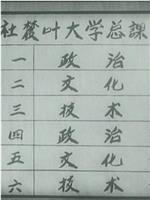 社叶大学总課
一 政治
二 文化
三 技术
四 政治
五 文化
六 技术